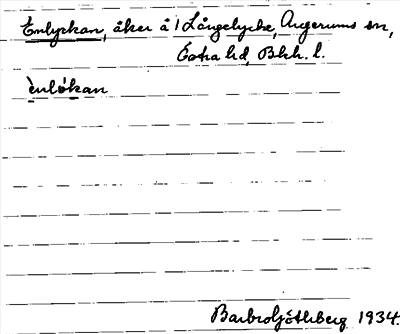 Enlyckan, åker å 1 Långelycke, Augerums sn,
Östra hd, Bkh. l.
ènlø̀kan
Barbro Göthberg 1934.